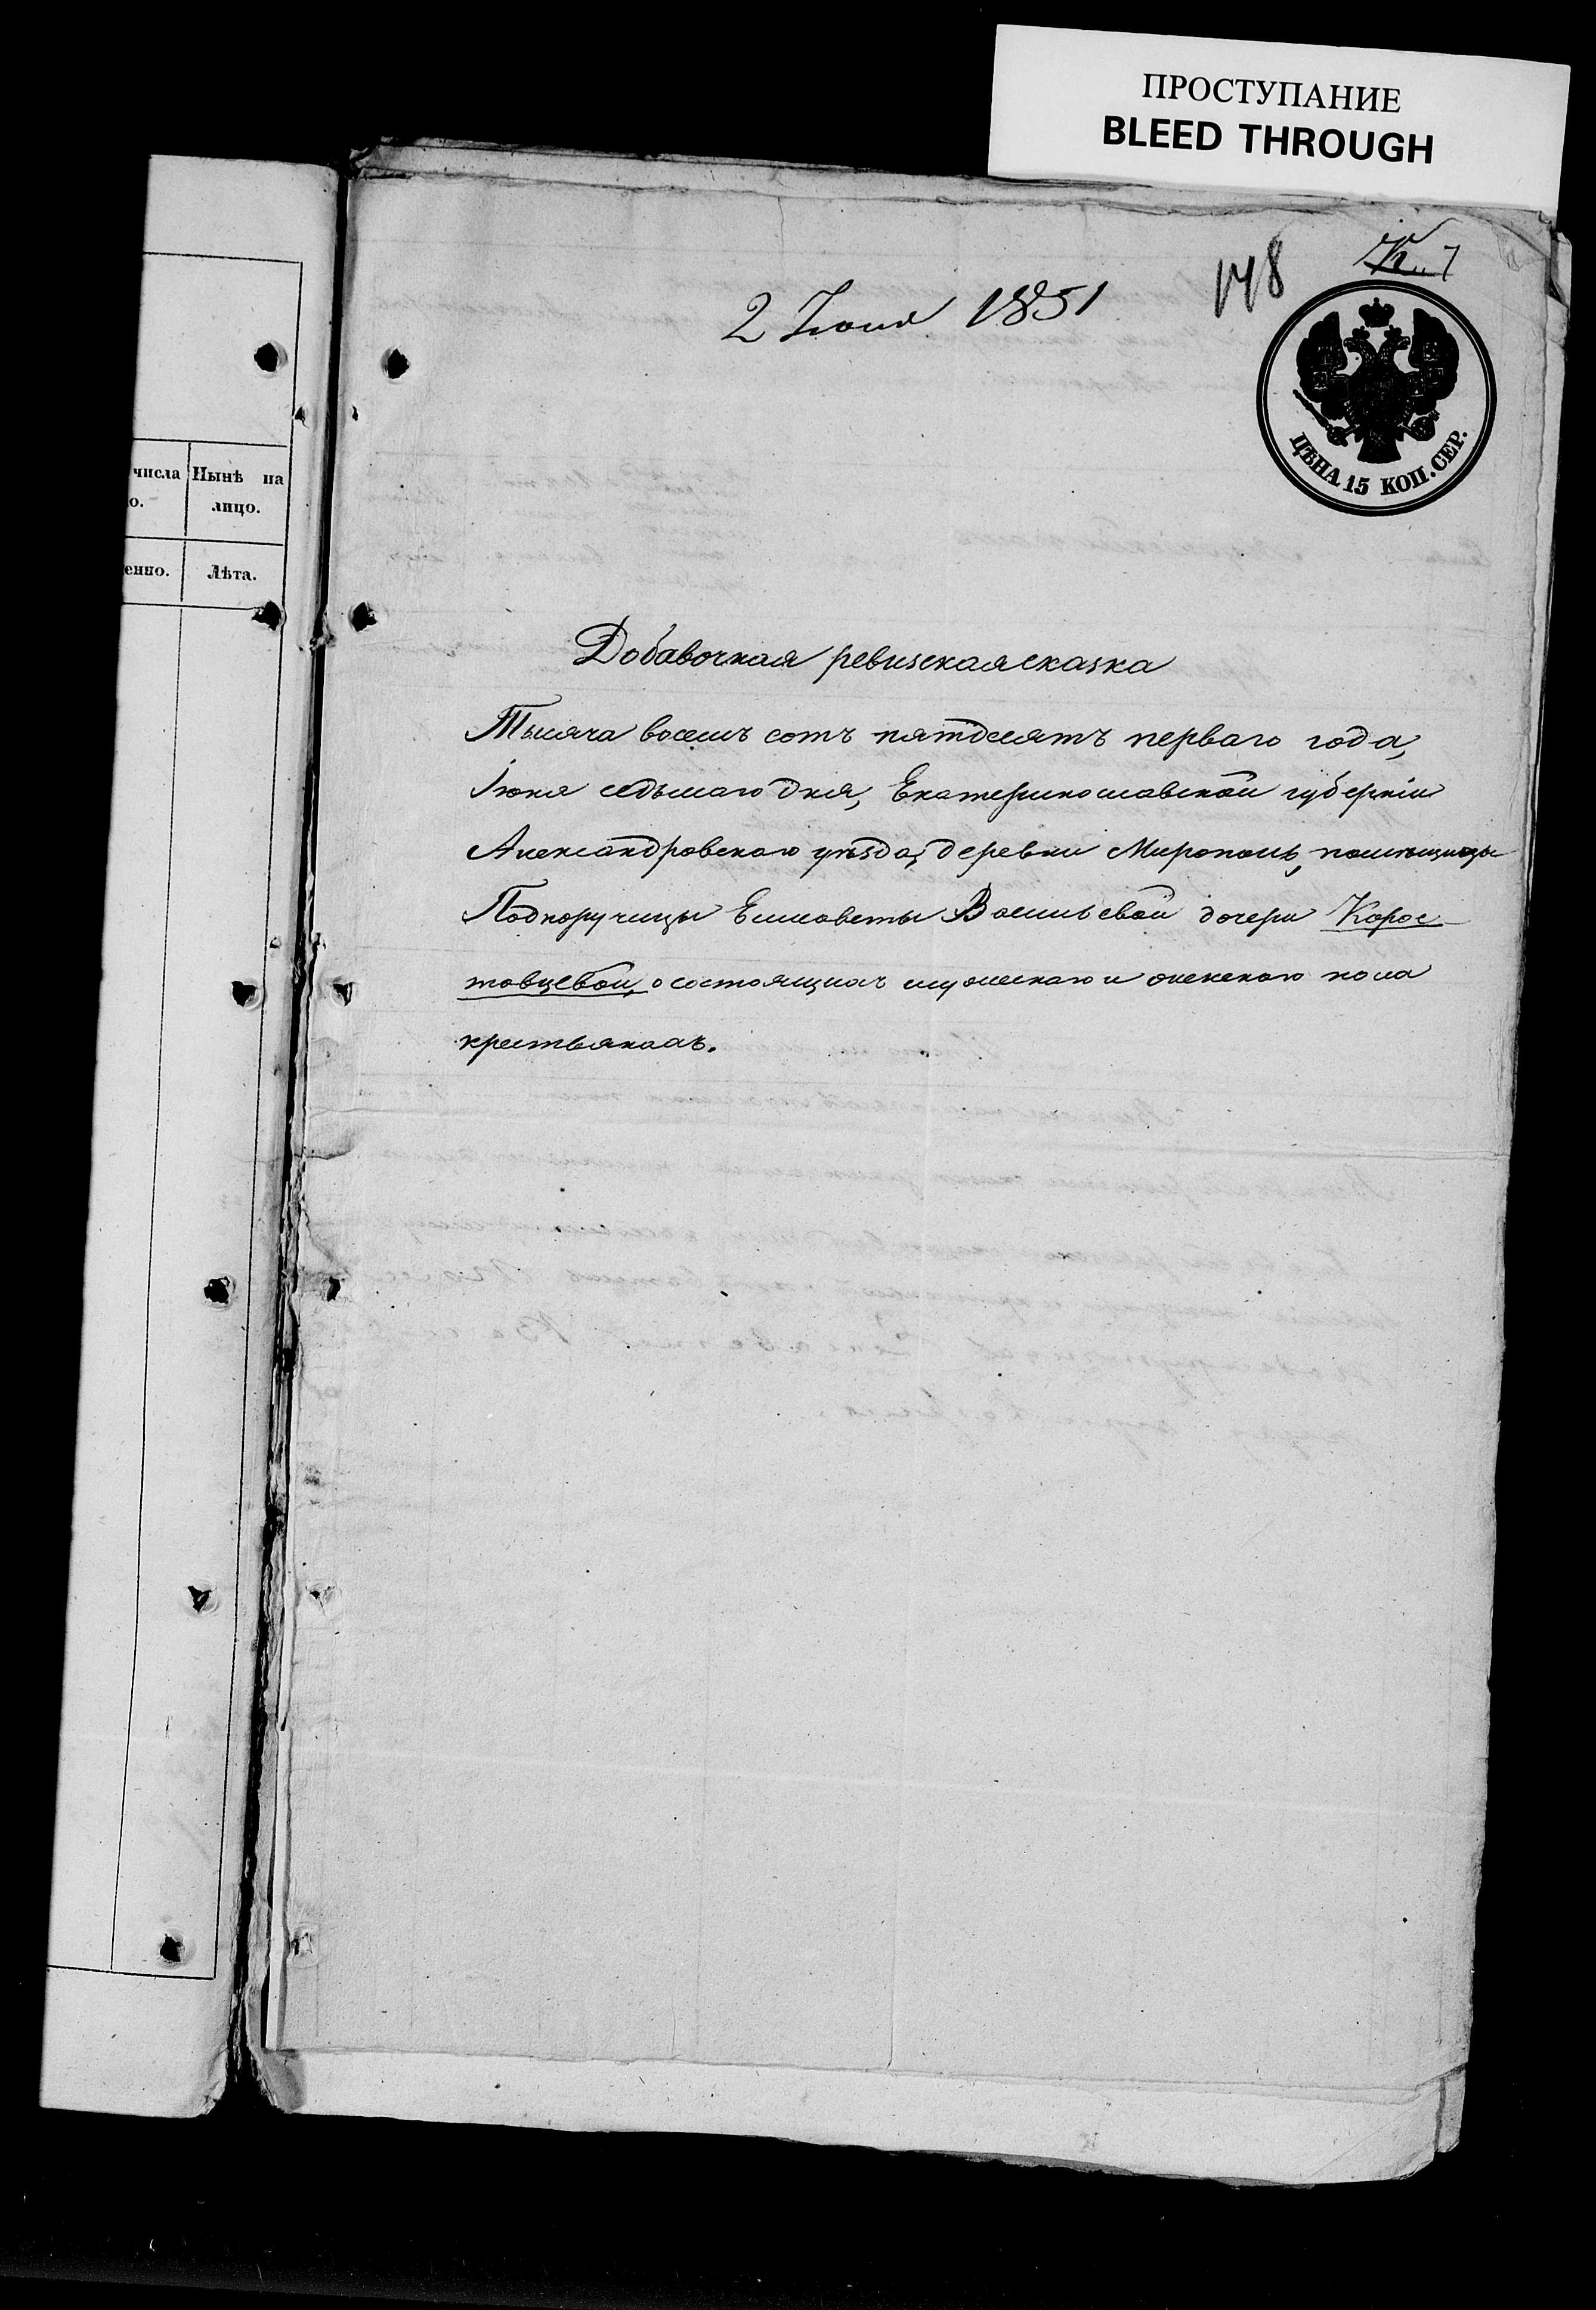 ПРОСТУПАНИЕ
BLEED THROUGH
148
2 Іюня 1851
ЦѢНА 15 КОП. СЕР.
числа Нынѣ на
о. лицо.
енно. Лѣта.
Добавочная ревизская сказка
Тысяча восемь сотъ пятдесятъ перваго года,
Іюня седьмаго дня, Екатеринославской губерніи
Александровскаго уѣзда, деревни Мирополь, помѣщицы
Подпоручицы Елисаветы Васильевой дочери Корос-
товцевой, о состоящихъ мужескаго и женскаго пола
крестьянахъ.